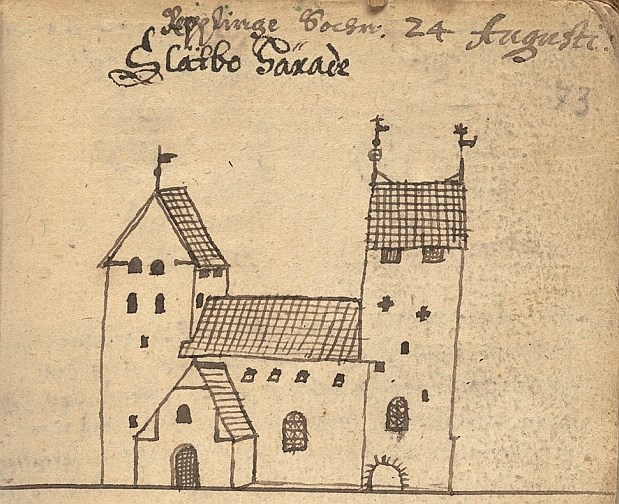 Repplinge Sochn. 24 Augusti.
Slätbo Härade
73